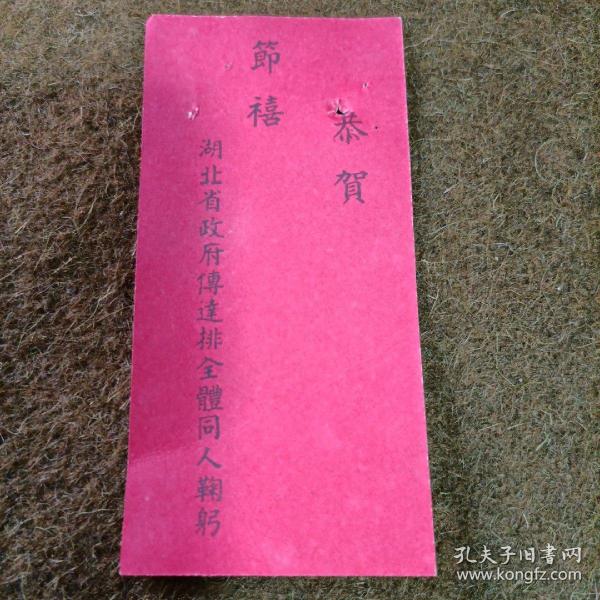 恭賀
節禧
湖北省政府傳達排全體同人鞠躬
孔夫子旧书网
www.kongfz.com